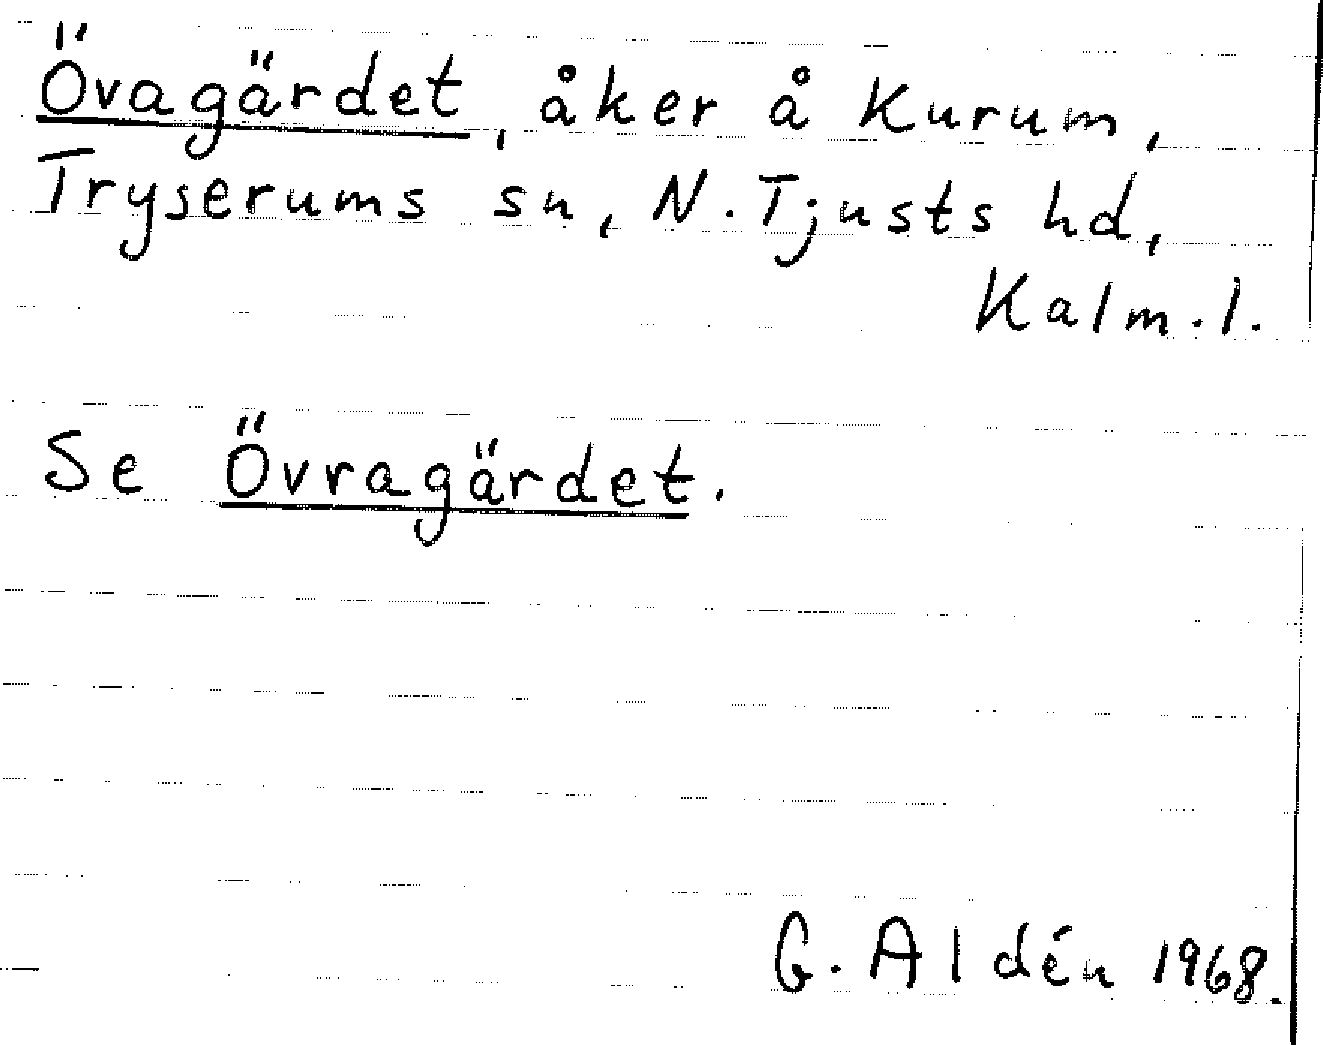 Övagärdet, åker å Kurum,
Tryserums sn, N. Tjusts hd,
Kalm. l.
Se Övragärdet.
G. Aldén 1968.